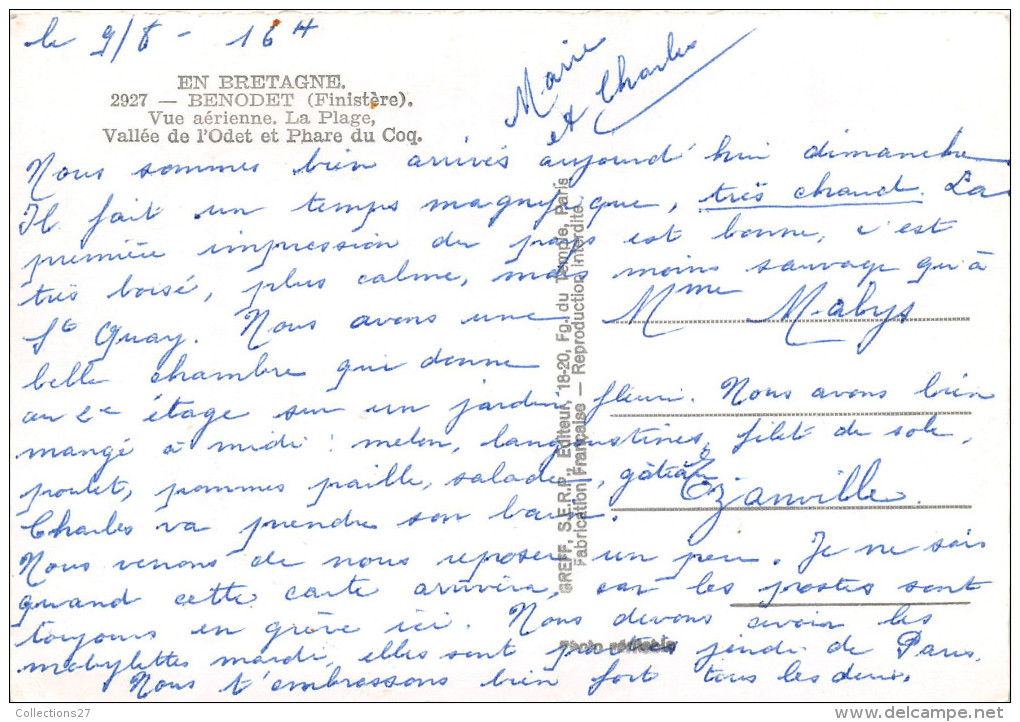 le 9/8 - 16H
EN BRETAGNE.
2927 — BENODET (Finistère).
Vue aérienne. La Plage,
Vallée de l'Odet et Phare du Coq.
Marie
et Charles
Nous sommes bien arrivés aujourd'hui dimanche
Il fait un temps magnifique, très chaud. La
première impression du pays est bonne, c'est
très boisé, plus calme, mais moins sauvage qu'à
St Quay. Nous avons une
belle chambre qui donne
au 2e étage sur un jardin fleuri. Nous avons bien
mangé à midi : melon, langoustines, filet de sole,
poulet, pommes paille, salade, gâteau.
Charles va prendre son bain.
Nous venons de nous reposer un peu. Je ne sais
quand cette carte arrivera, car les postes sont
toujours en grève ici. Nous devons avoir les
mobylettes mardi, elles sont parties jeudi de Paris.
Nous t'embrassons bien fort tous les deux.
Mme Mabys
Ezanville
GREFF, S.E.R.P., Editeur, 18-20, Fg. du Temple, Paris
Fabrication Française — Reproduction interdite.
Photo véritable
Collections27